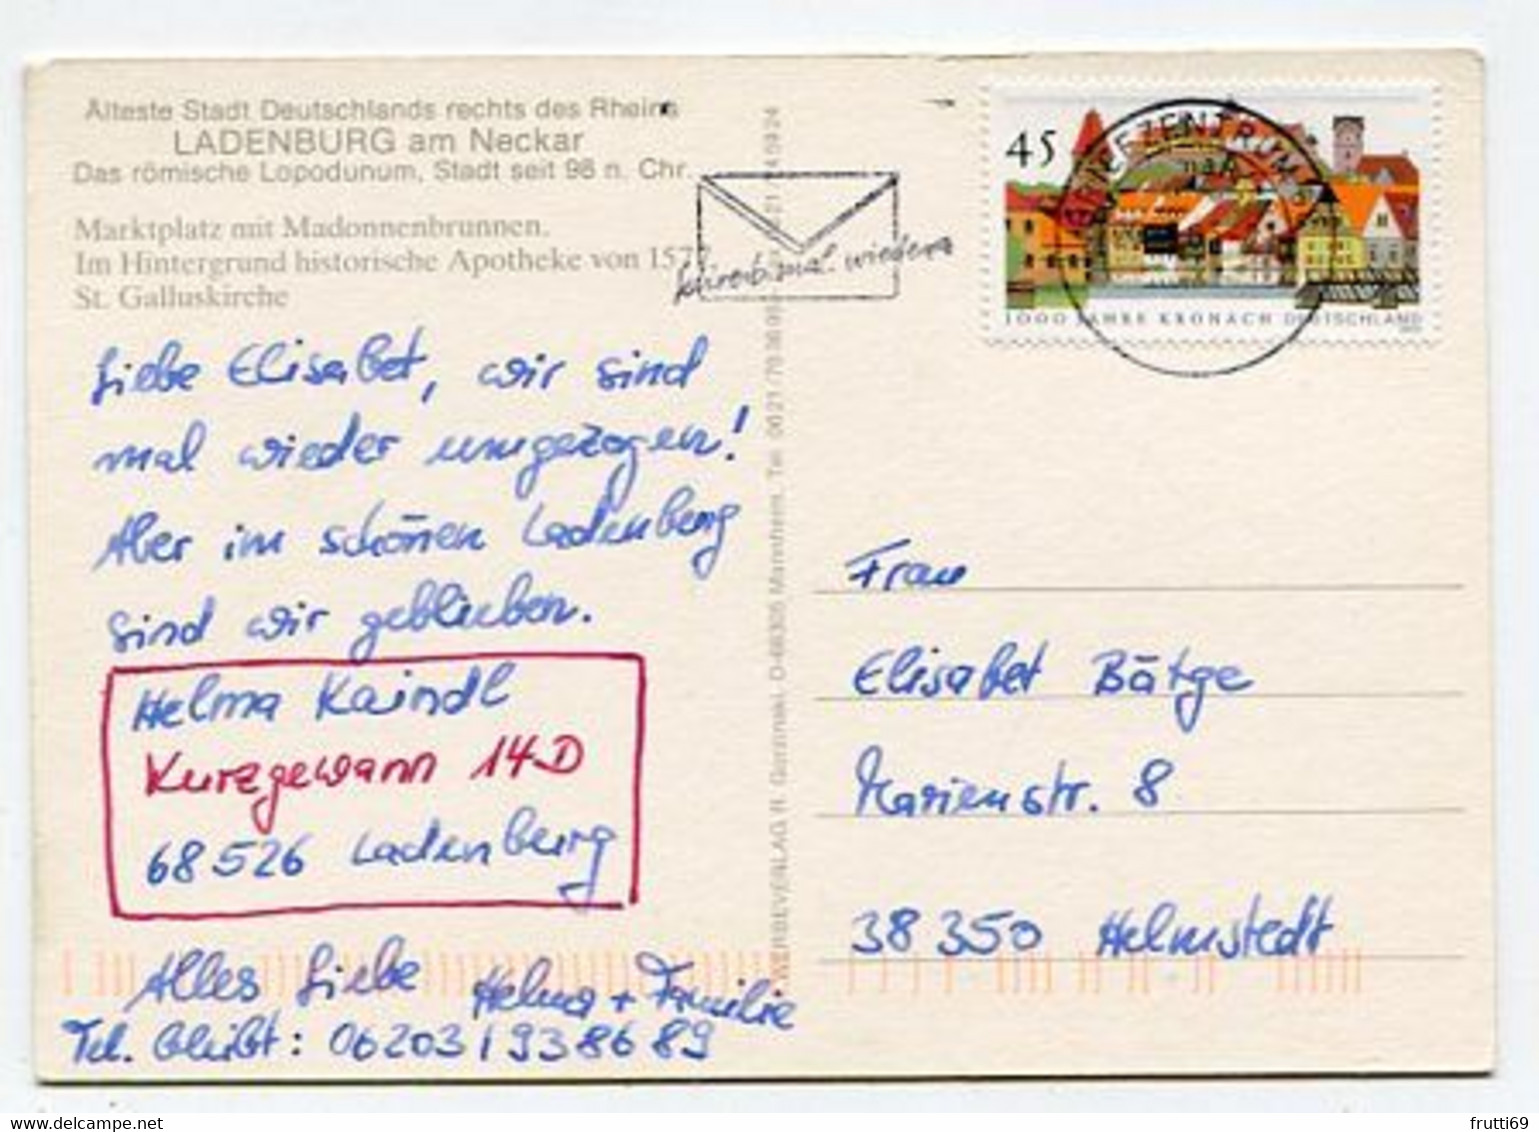 Älteste Stadt Deutschlands rechts des Rheins
LADENBURG am Neckar
Das römische Lopodunum, Stadt seit 98 n. Chr.
Marktplatz mit Madonnenbrunnen.
Im Hintergrund historische Apotheke von 1577.
St. Galluskirche
Liebe Elisabet, wir sind
mal wieder umgezogen!
Aber im schönen Ladenburg
sind wir geblieben.
Helma Kaindl
Kurzgewann 14D
68526 Ladenburg
Alles Liebe Helma + Familie
Tel. bleibt: 06203/938689
schreib mal wieder
45
BRIEFZENTRUM
1000 JAHRE KRONACH DEUTSCHLAND
WERBEVERLAG H. D-68305 Mannheim, Tel. 0621/
Frau
Elisabet Bätge
Marienstr. 8
38350 Helmstedt
frutti69